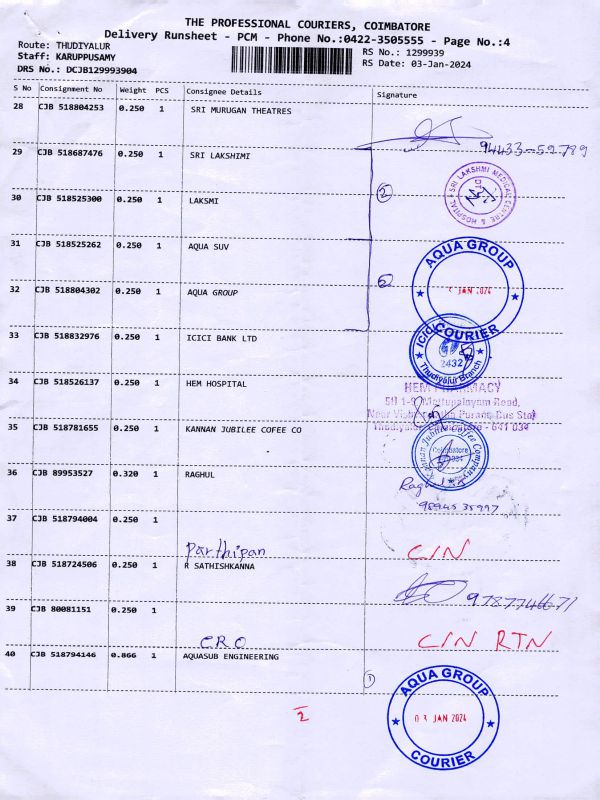 THE PROFESSIONAL COURIERS, COIMBATORE
Delivery Runsheet - PCM - Phone No.:0422-3505555 - Page No.:4
Route: THUDIYALUR
Staff: KARUPPUSAMY
DRS No.: DCJB129993904
RS No.: 1299939
RS Date: 03-Jan-2024
S No Consignment No Weight PCS Consignee Details Signature
28 CJB 518804253 0.250 1 SRI MURUGAN THEATRES
94433-52789
29 CJB 518687476 0.250 1 SRI LAKSHIMI
SRI LAKSHMI MEDICAL CENTRE & HOSPITAL
2
30 CJB 518525300 0.250 1 LAKSMI
31 CJB 518525262 0.250 1 AQUA SUV
AQUA GROUP
JAN 2024
COURIER
2
32 CJB 518804302 0.250 1 AQUA GROUP
33 CJB 518832976 0.250 1 ICICI BANK LTD
ICICI
2432
Thudiyalur Branch
34 CJB 518526137 0.250 1 HEM HOSPITAL
HEM PHARMACY
Mettupalayam Road,
Bus Stop
641 034
35 CJB 518781655 0.250 1 KANNAN JUBILEE COFEE CO
Kannan Jubilee Coffee Company
Coimbatore
36 CJB 89953527 0.320 1 RAGHUL
37 CJB 518794004 0.250 1
Parthipan
C/N
38 CJB 518724506 0.250 1 R SATHISHKANNA
39 CJB 80081151 0.250 1
CRO
C/N RTN
40 CJB 518794146 0.866 1 AQUASUB ENGINEERING
1
AQUA GROUP
03 JAN 2024
COURIER
2